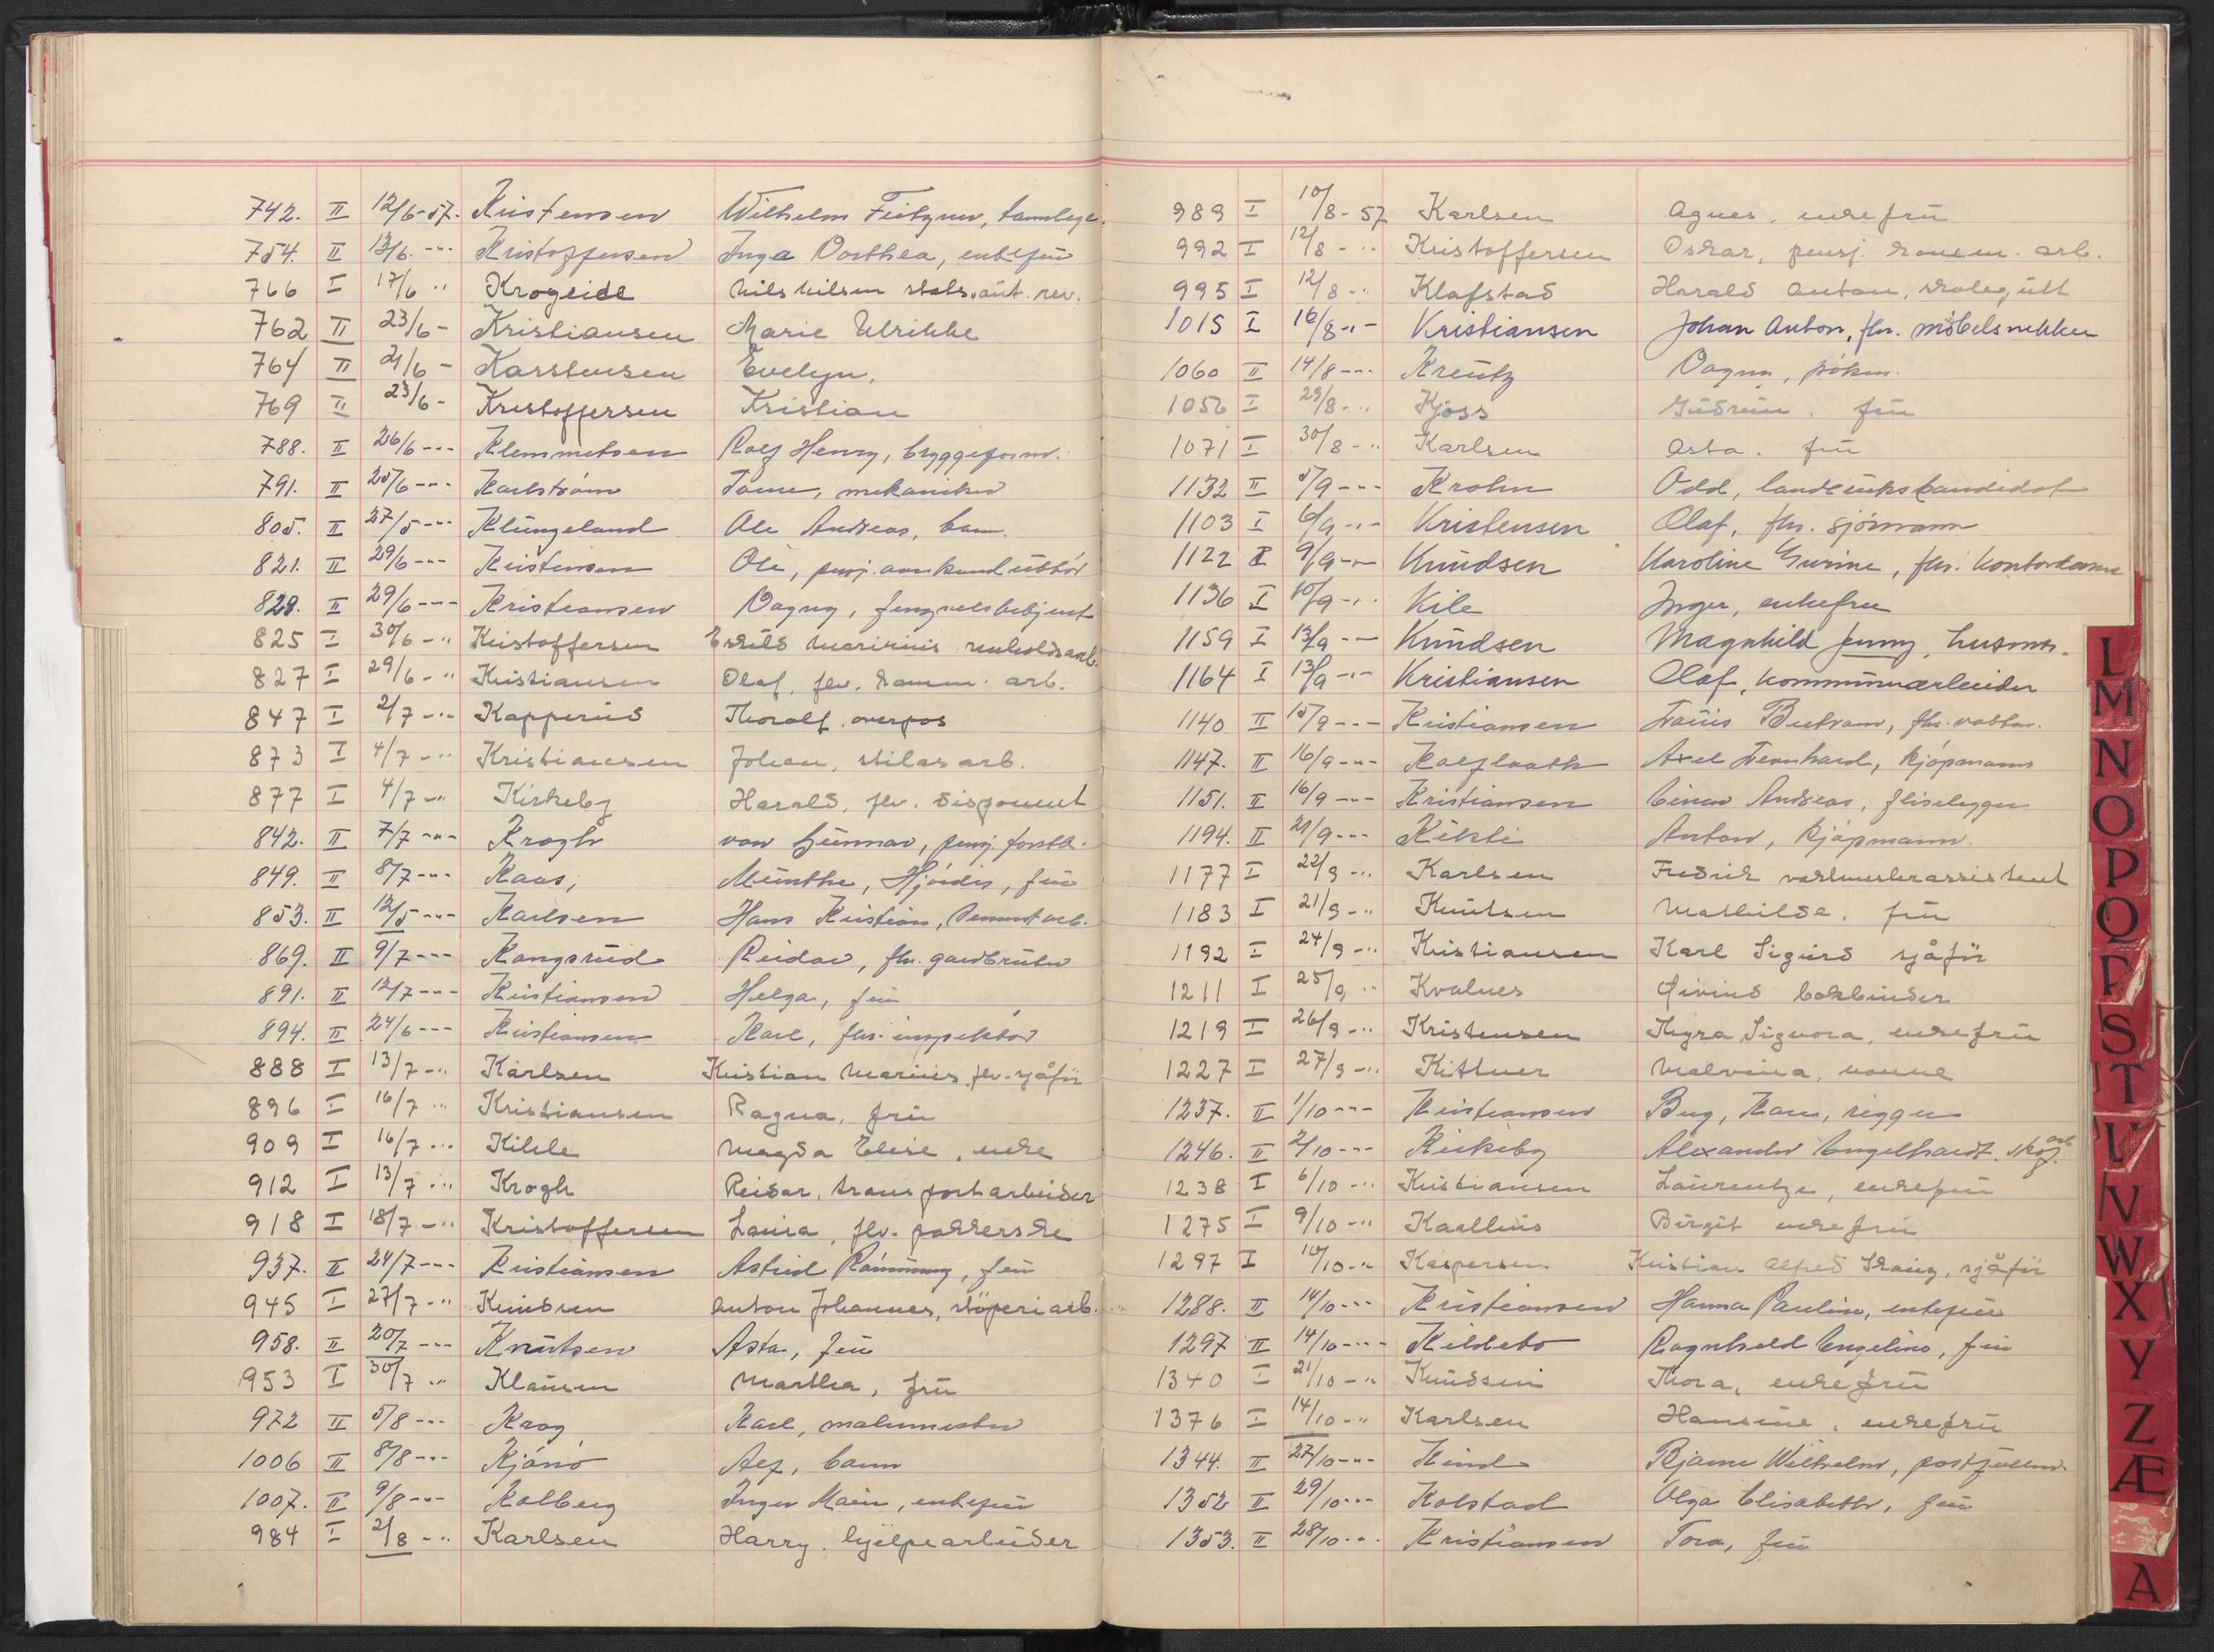 742. II 12/6-57. Kristensen Wilhelm, tannlege.
754. II 13/6. -"- Kristoffersen Inga Dorthea, enkefrü
766 I 17/6 " Krogeide Nils Nilsen stats.aut. rev.
762 II 23/6 - Kristiansen Marie Ulrikke
764 II 21/6 - Karstensen Evelyn.
769 II 23/6 - Kristoffersen Kristian
788. II 26/6 -"- Klemmetsen Rolf Henry, bryggeform.
791. II 25/6 -"- Karlström mekaniker
805. II 27/5 -"- Klüngeland Ole Andreas, barn.
821. II 29/6 -"- Kristensen Ole, pensj.
829. II 29/6 -"- Kristiansen Dagny, fengselsbetjent
825 I 30/6 -" Kristoffersen Eskild renholdsarb.
827 I 29/6 -" Kristiansen Olaf. fhv. komm. arb.
847 I 2/7 -"- Kapperüd Thoralf. overpos
873 I 4/7 -" Kristiansen Johan, stilasarb.
877 I 4/7 -" Kirkeby Harald, fhv. disponent
842. II 7/7 -"- Krogh von Günnar, pensj. forstk.
849. II 8/7 -"- Kaas, Münthe, Hjördis, frü
853. II 12/5 -"- Karlsen Hans Kristian, sementarb.
869. II 9/7 -"- Kongsrüd Reidar, fhv. gardbrüker
891. II 12/7 -"- Kristiansen Helga, frü
894. II 24/6 -"- Kristiansen Karl, fhv. inspektör
888 I 13/7 -" Karlsen Kristian Mariüs. fhv. sjåför
896 I 16/7 " Kristiansen Ragna, frü
909 I 16/7 -" Kihle Magda Elise, enke
912 I 13/7 -" Krogh Reidar, transportarbeider
918 I 18/7 -" Kristoffersen Laüra, fhv. pakkerske
937. II 24/7 -"- Kristiansen Astrid frü
945 I 27/7 -" Knüdsen Anton Johannes, stöperiarb.
958. II 20/7 -"- Knütsen Asta, frü
953 I 30/7 -" Klaüsen Martha, frü
972 II 5/8 -"- Krog Karl, malermester
1006 II 8/8 -"- Kjönö Alf, barn
1007. II 9/8 -"- Kolberg Inger Marie, enkefrü
984 I 2/8 -" Karlsen Harry. hjelpearbeider
989 I 10/8 - 57 Karlsen Agnes. enkefrü
992 I 12/8 -" Kristoffersen Oskar, pensj. komm. arb.
995 I 12/8 -" Klafstad Harald Anton, skolegütt
1015 I 16/8 -"- Kristiansen Johan Anton, fhv. möbelsnekker
1060 II 14/8 -"- Kreütz Dagny, frökn.
1056 I 29/8 -" Kjöss Güdrün. frü
1071 I 30/8 -" Karlsen Asta. frü
1132 II 5/9 -"- Krohn Odd, landbrükskandidat
1103 I 6/9 -"- Kristensen Olaf, fhv. sjömann
1122 I 9/9 -"- Knüdsen Karoline Gurine, fhv. kontordame
1136 I 10/9 -"- Kile Inger, enkefru
1159 I 13/9 -"- Knüdsen Magnhild Jenny, husmor.
1164 I 13/9 -"- Kristiansen Olaf, kommünearbeider
1140 II 15/9 -"- Kristiansen Loüis Bertram, fhv.
1147. II 16/9 -"- Axel Leonhard, kjöpmann
1151. II 16/9 -"- Kristiansen Einar Andreas, fliselegger
1194. II 21/9 -"- Anton, kjöpmann.
1177 I 22/9 -" Karlsen Fredrik verkmesterassistent
1183 I 21/9 -" Knütsen Mathilde. frü
1192 I 24/9 -" Kristiansen Karl Sigürd sjåför
1211 I 25/9 " Kvalnes Øivind bokbinder
1219 I 26/9 -" Kristensen Thyra Signora, enkefrü
1227 I 27/9 -" Kittner Malvina, nonne
1237. II 1/10 -"- Kristiansen Berg, Kaare, rigger
1246. II 2/10 -"- Kirkeby Alexander Engelhardt. skog. arb
1238 I 6/10 -" Kristiansen Laürentze, enkefrü
1275 I 9/10 -" Kaalliüs Birgit enkefrü
1297 I 10/10 -" Kaspersen Kristian Alfred sjåför
1288. II 14/10 -"- Kristiansen Hanna Pauline, enkefrü
1297 II 14/10 -"- Kildebo Ragnhild Engeline, frü
1340 I 21/10 -" Knüdsen Thora, enkefrü
1376 I 14/10 -" Karlsen Hansine, enkefrü
1344. II 27/10 -"- Kind Bjarne Wilhelm, postfüllm.
1352 II 29/10 -"- Kolstad Olga Elisabeth, frü
1353. II 28/10 -"- Kristiansen Tora, frü
L
M
N
O
P
Q
R
S
T
U
V
W
X
Y
Z
Æ
A